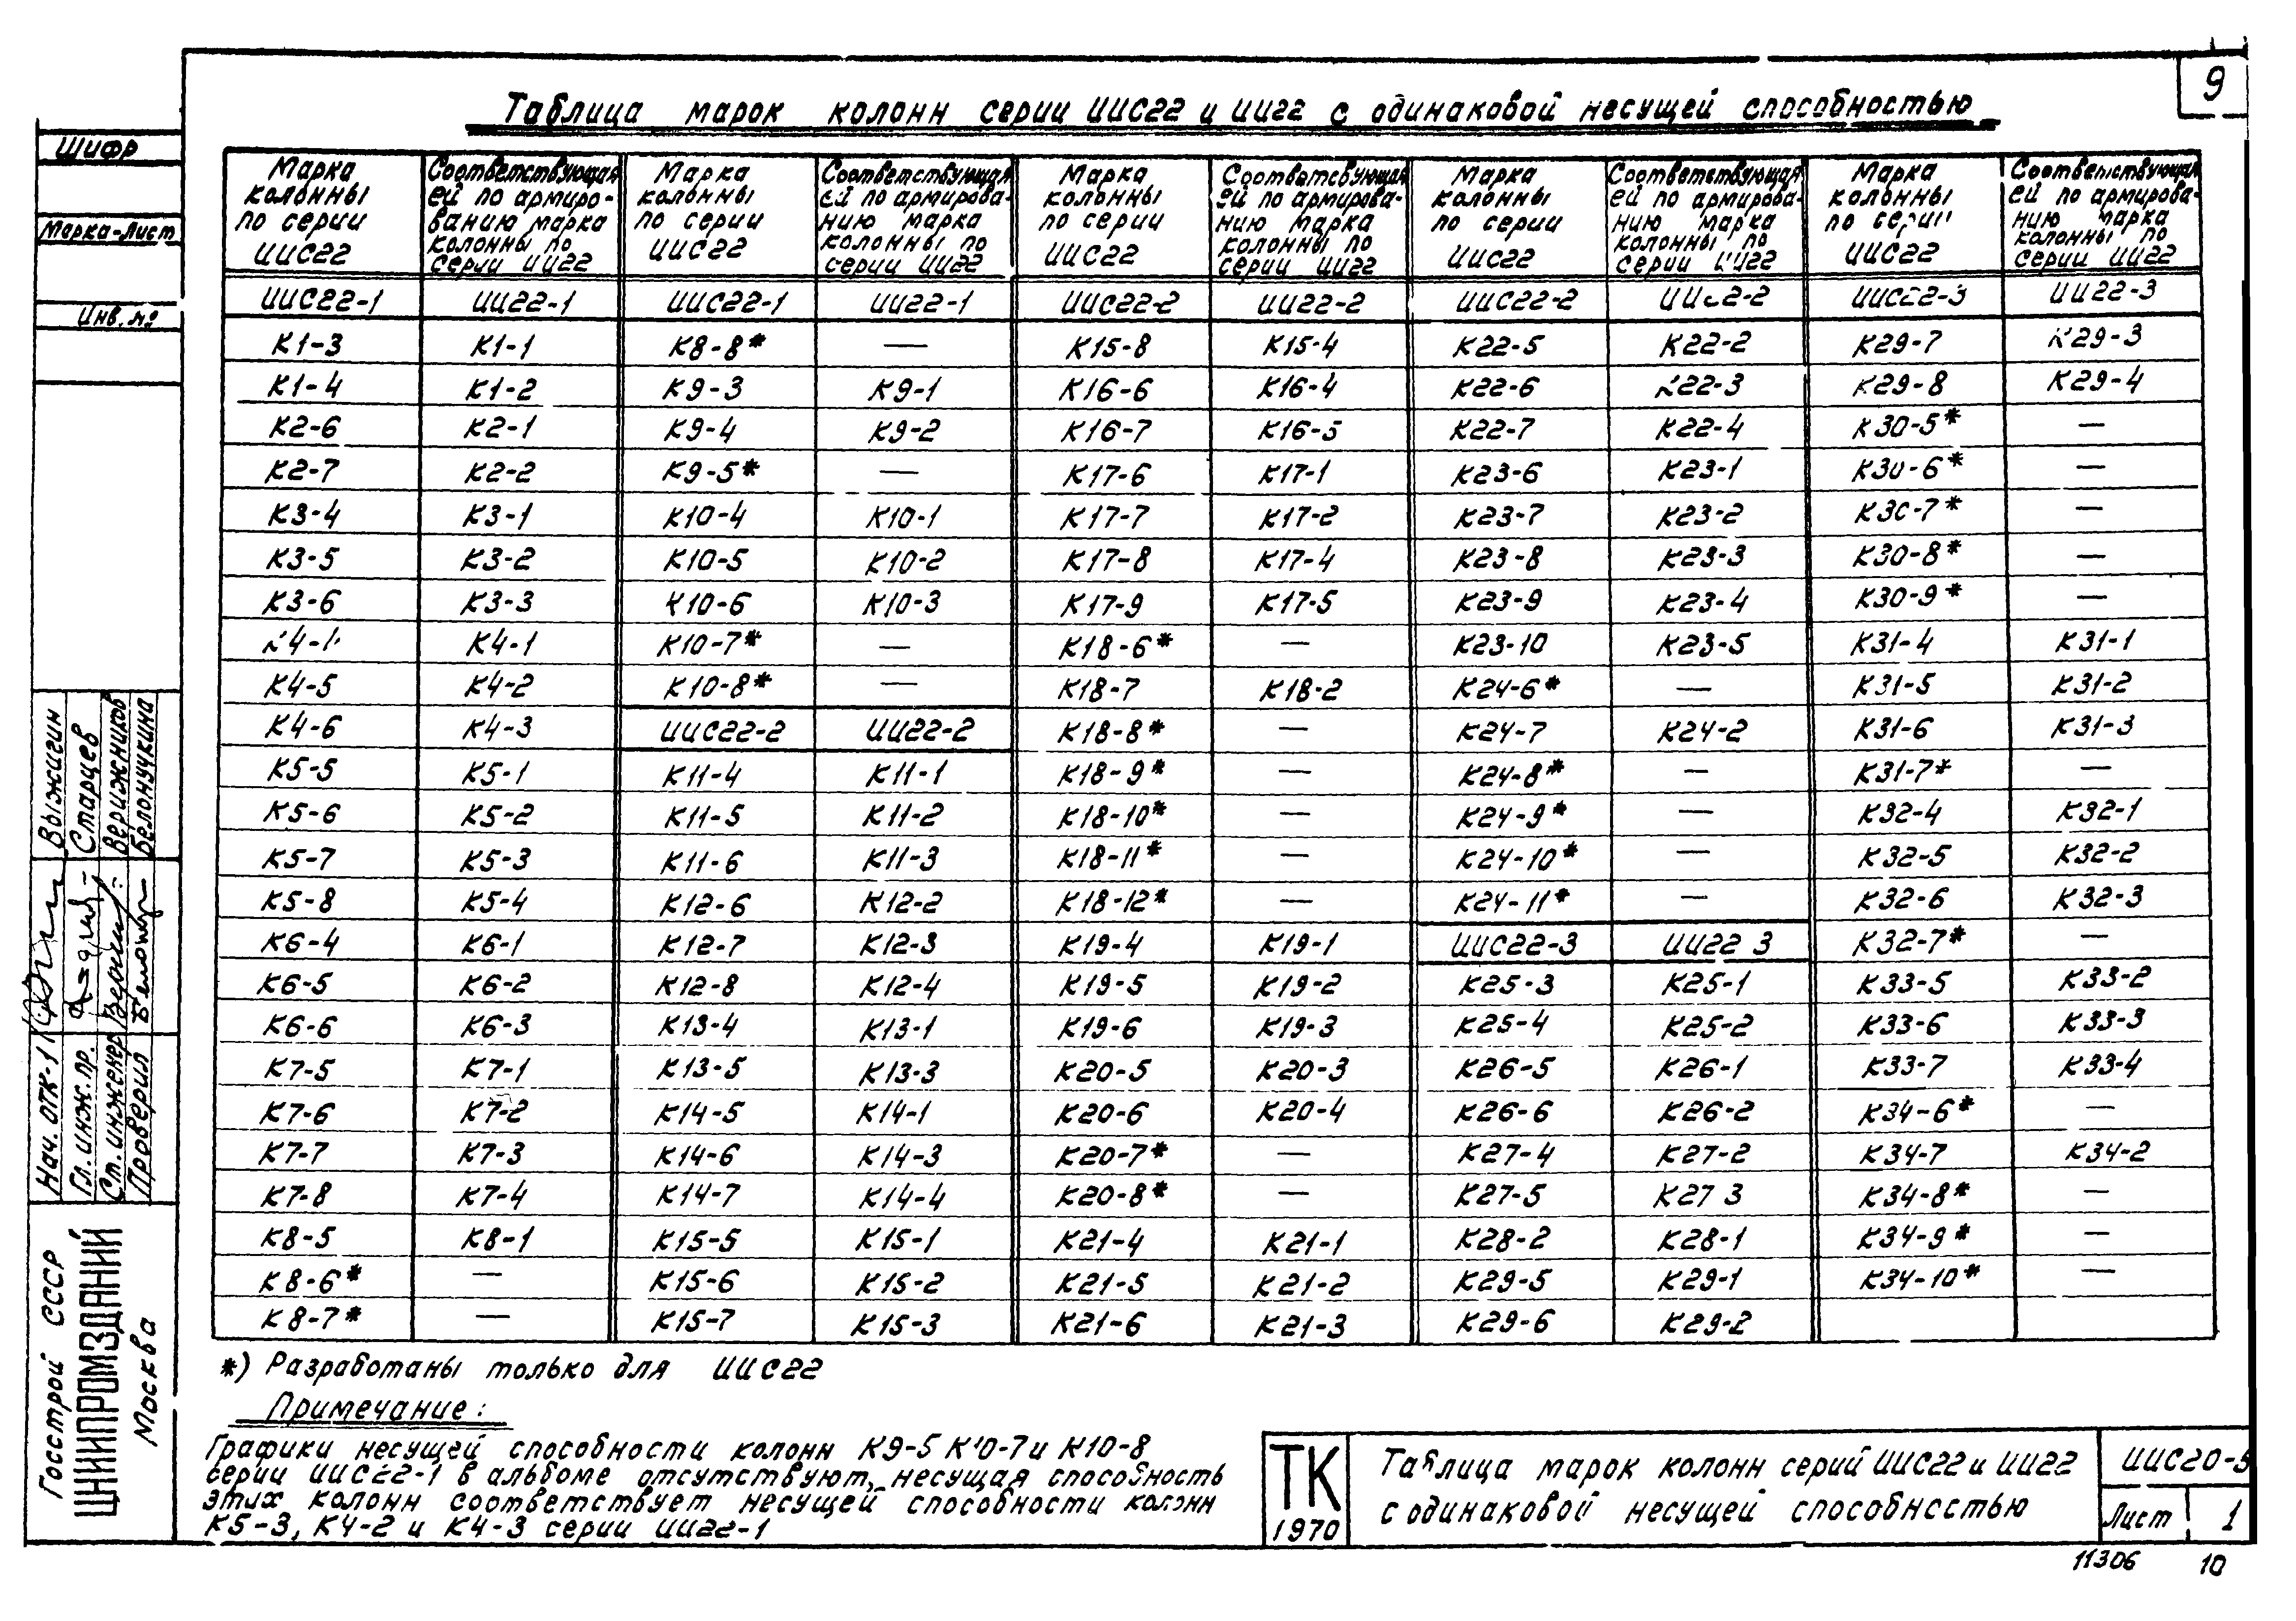 9
Таблица марок колонн серии ИИС22 и ИИ22 с одинаковой несущей способностью
Марка колонны по серии ИИС22 | Соответствующая ей по армированию марка колонны по серии ИИ22 | Марка колонны по серии ИИС22 | Соответствующая ей по армированию марка колонны по серии ИИ22 | Марка колонны по серии ИИС22 | Соответсвующая ей по армированию марка колонны по серии ИИ22 | Марка колонны по серии ИИС22 | Соответствующая ей по армированию марка колонны по серии ИИ22 | Марка колонны по серии ИИС22 | Соответствующая ей по армированию марка колонны по серии ИИ22
ИИС22-1 | ИИ22-1 | ИИС22-1 | ИИ22-1 | ИИС22-2 | ИИ22-2 | ИИС22-2 | ИИ22-2 | ИИС22-3 | ИИ22-3
К1-3 | К1-1 | К8-8* | — | К15-8 | К15-4 | К22-5 | К22-2 | К29-7 | К29-3
К1-4 | К1-2 | К9-3 | К9-1 | К16-6 | К16-4 | К22-6 | К22-3 | К29-8 | К29-4
К2-6 | К2-1 | К9-4 | К9-2 | К16-7 | К16-5 | К22-7 | К22-4 | К30-5* | —
К2-7 | К2-2 | К9-5* | — | К17-6 | К17-1 | К23-6 | К23-1 | К30-6* | —
К3-4 | К3-1 | К10-4 | К10-1 | К17-7 | К17-2 | К23-7 | К23-2 | К30-7* | —
К3-5 | К3-2 | К10-5 | К10-2 | К17-8 | К17-4 | К23-8 | К23-3 | К30-8* | —
К3-6 | К3-3 | К10-6 | К10-3 | К17-9 | К17-5 | К23-9 | К23-4 | К30-9* | —
К4-4 | К4-1 | К10-7* | — | К18-6* | — | К23-10 | К23-5 | К31-4 | К31-1
К4-5 | К4-2 | К10-8* | — | К18-7 | К18-2 | К24-6* | — | К31-5 | К31-2
К4-6 | К4-3 | ИИС22-2 | ИИ22-2 | К18-8* | — | К24-7 | К24-2 | К31-6 | К31-3
К5-5 | К5-1 | К11-4 | К11-1 | К18-9* | — | К24-8* | — | К31-7* | —
К5-6 | К5-2 | К11-5 | К11-2 | К18-10* | — | К24-9* | — | К32-4 | К32-1
К5-7 | К5-3 | К11-6 | К11-3 | К18-11* | — | К24-10* | — | К32-5 | К32-2
К5-8 | К5-4 | К12-6 | К12-2 | К18-12* | — | К24-11* | — | К32-6 | К32-3
К6-4 | К6-1 | К12-7 | К12-3 | К19-4 | К19-1 | ИИС22-3 | ИИ22 3 | К32-7* | —
К6-5 | К6-2 | К12-8 | К12-4 | К19-5 | К19-2 | К25-3 | К25-1 | К33-5 | К33-2
К6-6 | К6-3 | К13-4 | К13-1 | К19-6 | К19-3 | К25-4 | К25-2 | К33-6 | К33-3
К7-5 | К7-1 | К13-5 | К13-3 | К20-5 | К20-3 | К26-5 | К26-1 | К33-7 | К33-4
К7-6 | К7-2 | К14-5 | К14-1 | К20-6 | К20-4 | К26-6 | К26-2 | К34-6* | —
К7-7 | К7-3 | К14-6 | К14-3 | К20-7* | — | К27-4 | К27-2 | К34-7 | К34-2
К7-8 | К7-4 | К14-7 | К14-4 | К20-8* | — | К27-5 | К27 3 | К34-8* | —
К8-5 | К8-1 | К15-5 | К15-1 | К21-4 | К21-1 | К28-2 | К28-1 | К34-9* | —
К8-6* | — | К15-6 | К15-2 | К21-5 | К21-2 | К29-5 | К29-1 | К34-10* | —
К8-7* | — | К15-7 | К15-3 | К21-6 | К21-3 | К29-6 | К29-2
*) Разработаны только для ИИС22
Примечание:
Графики несущей способности колонн К9-5 К10-7 и К10-8
серии ИИС22-1 в альбоме отсутствуют, несущая способность
этих колонн соответствует несущей способности колонн
К5-3, К4-2 и К4-3 серии ИИ22-1
ТК
1970
Таблица марок колонн серий ИИС22 и ИИ22
с одинаковой несущей способностью
ИИС20-5
Лист 1
11306 10
Шифр
Марка-лист
Инв. №
Нач. ОТК-1 Выжигин
Гл. инж. пр. Старцев
Ст. инженер Верижников
Проверил Белонучкина
Госстрой СССР
ЦНИИПРОМЗДАНИЙ
Москва